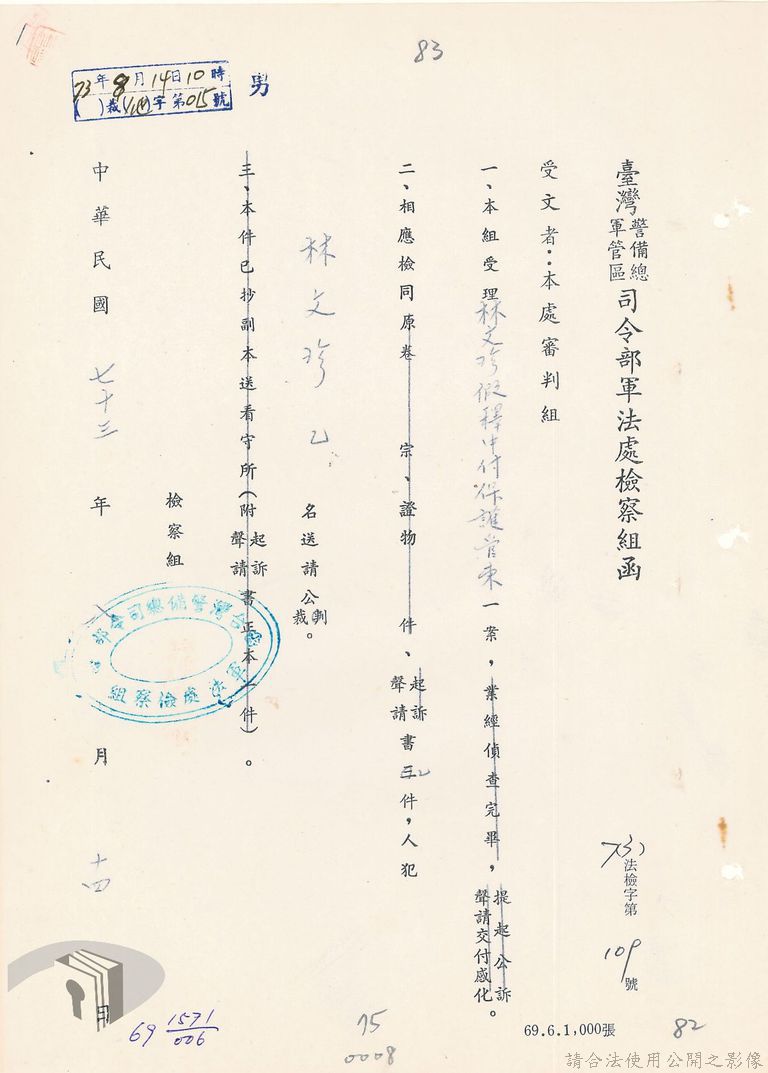 83
73年8月14日10時
( )裁字第015號
男
臺灣警備總司令部軍法處檢察組函
軍管區
73)法檢字第109號
受文者：本處審判組
一、本組受理林文珍假釋中付保護管束一案，業經偵查完畢，提起公訴
聲請交付感化。
二、相應檢同原卷 宗、證物 件、起訴
聲請書三2件，人犯
林文珍乙名送請公判
裁。
三、本件已抄副本送看守所（附起訴
聲請書正本一件）。
檢察組
台灣警備總司令部
軍法處檢察組
中華民國七十三年 月十四日
69 1571/006
75
0008
69.6.1,000張
82
請合法使用公開之影像